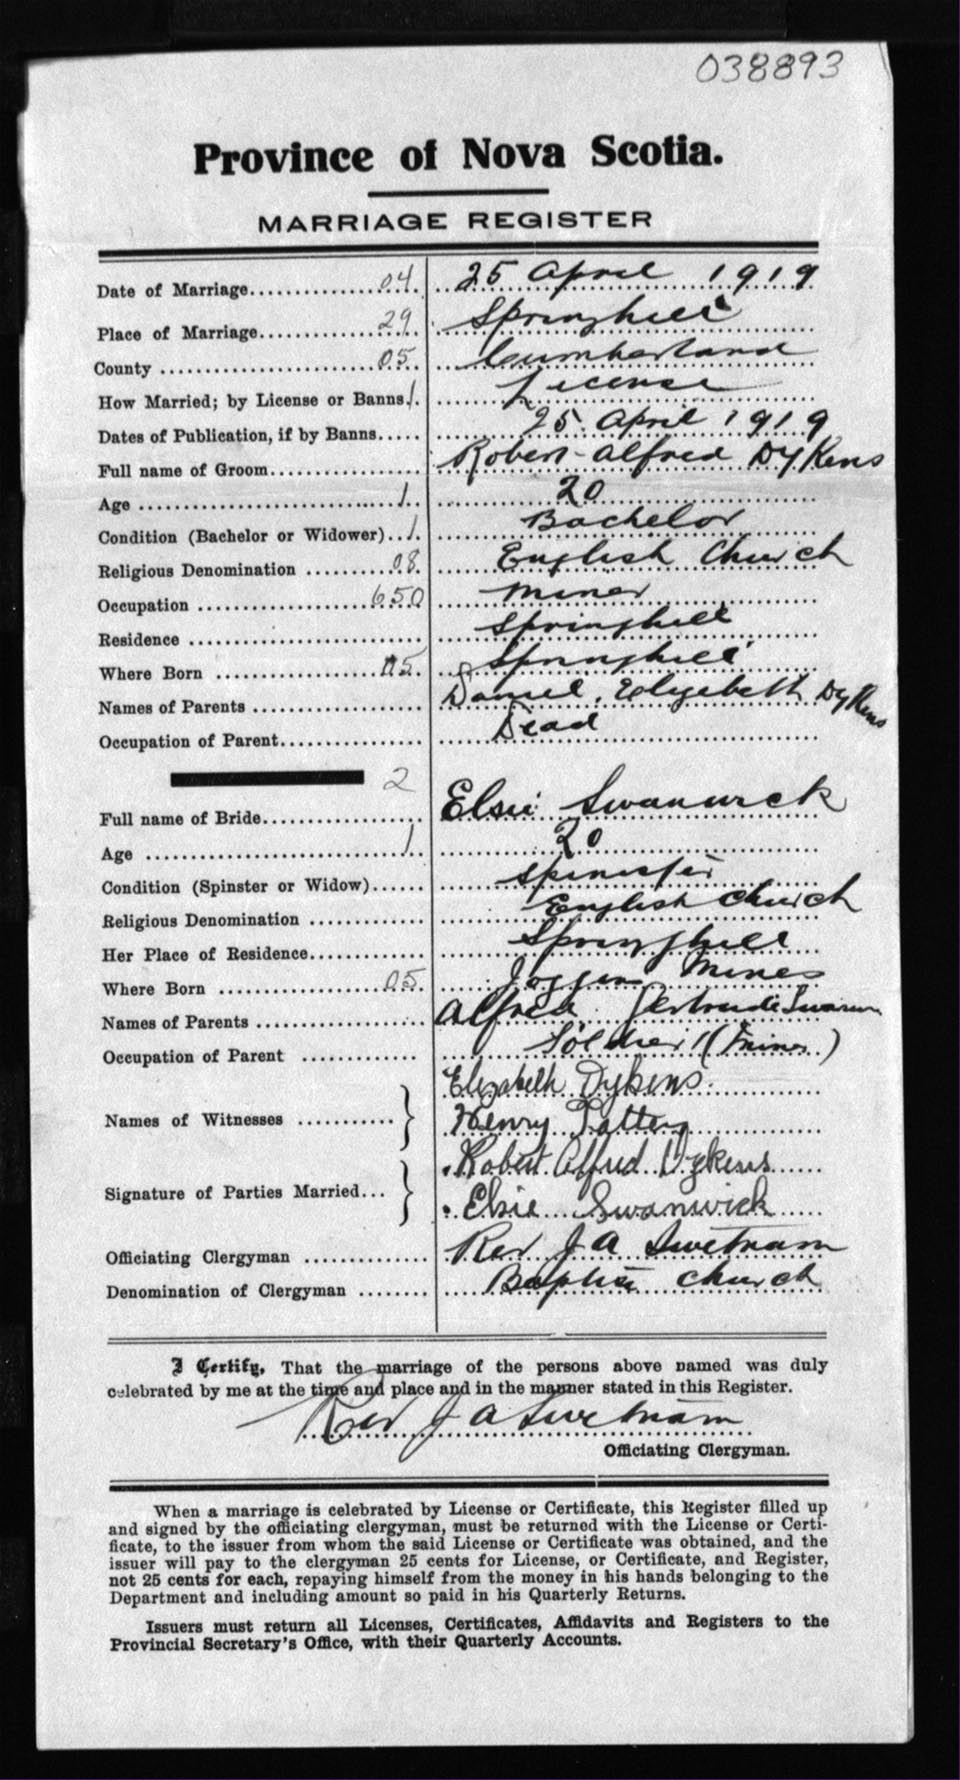 038893
Province of Nova Scotia.
MARRIAGE REGISTER
Date of Marriage 04 25 April 1919
Place of Marriage 29 Springhill
County 05 Cumberland
How Married; by License or Banns 1 License
Dates of Publication, if by Banns 25 April 1919
Full name of Groom Robert Alfred Dykens
Age 1 20
Condition (Bachelor or Widower) 1 Bachelor
Religious Denomination 08 English Church
Occupation 650 Miner
Residence Springhill
Where Born 05 Springhill
Names of Parents Daniel, Elizebeth Dykens
Occupation of Parent Dead
2
Full name of Bride Elsie Swanwick
Age 1 20
Condition (Spinster or Widow) Spinster
Religious Denomination English Church
Her Place of Residence Springhill
Where Born 05 Joggins Mines
Names of Parents Alfred Gertrude
Occupation of Parent Soldier (miner)
Names of Witnesses } Elizabeth Dykens
Henry
Signature of Parties Married } Robert Alfred Dykens
Elsie Swanwick
Officiating Clergyman Rev J A Swetnam
Denomination of Clergyman Baptist Church
I Certify, That the marriage of the persons above named was duly
celebrated by me at the time and place and in the manner stated in this Register.
Rev J A Swetnam
Officiating Clergyman.
When a marriage is celebrated by License or Certificate, this Register filled up
and signed by the officiating clergyman, must be returned with the License or Certi-
ficate, to the issuer from whom the said License or Certificate was obtained, and the
issuer will pay to the clergyman 25 cents for License, or Certificate, and Register,
not 25 cents for each, repaying himself from the money in his hands belonging to the
Department and including amount so paid in his Quarterly Returns.
Issuers must return all Licenses, Certificates, Affidavits and Registers to the
Provincial Secretary's Office, with their Quarterly Accounts.